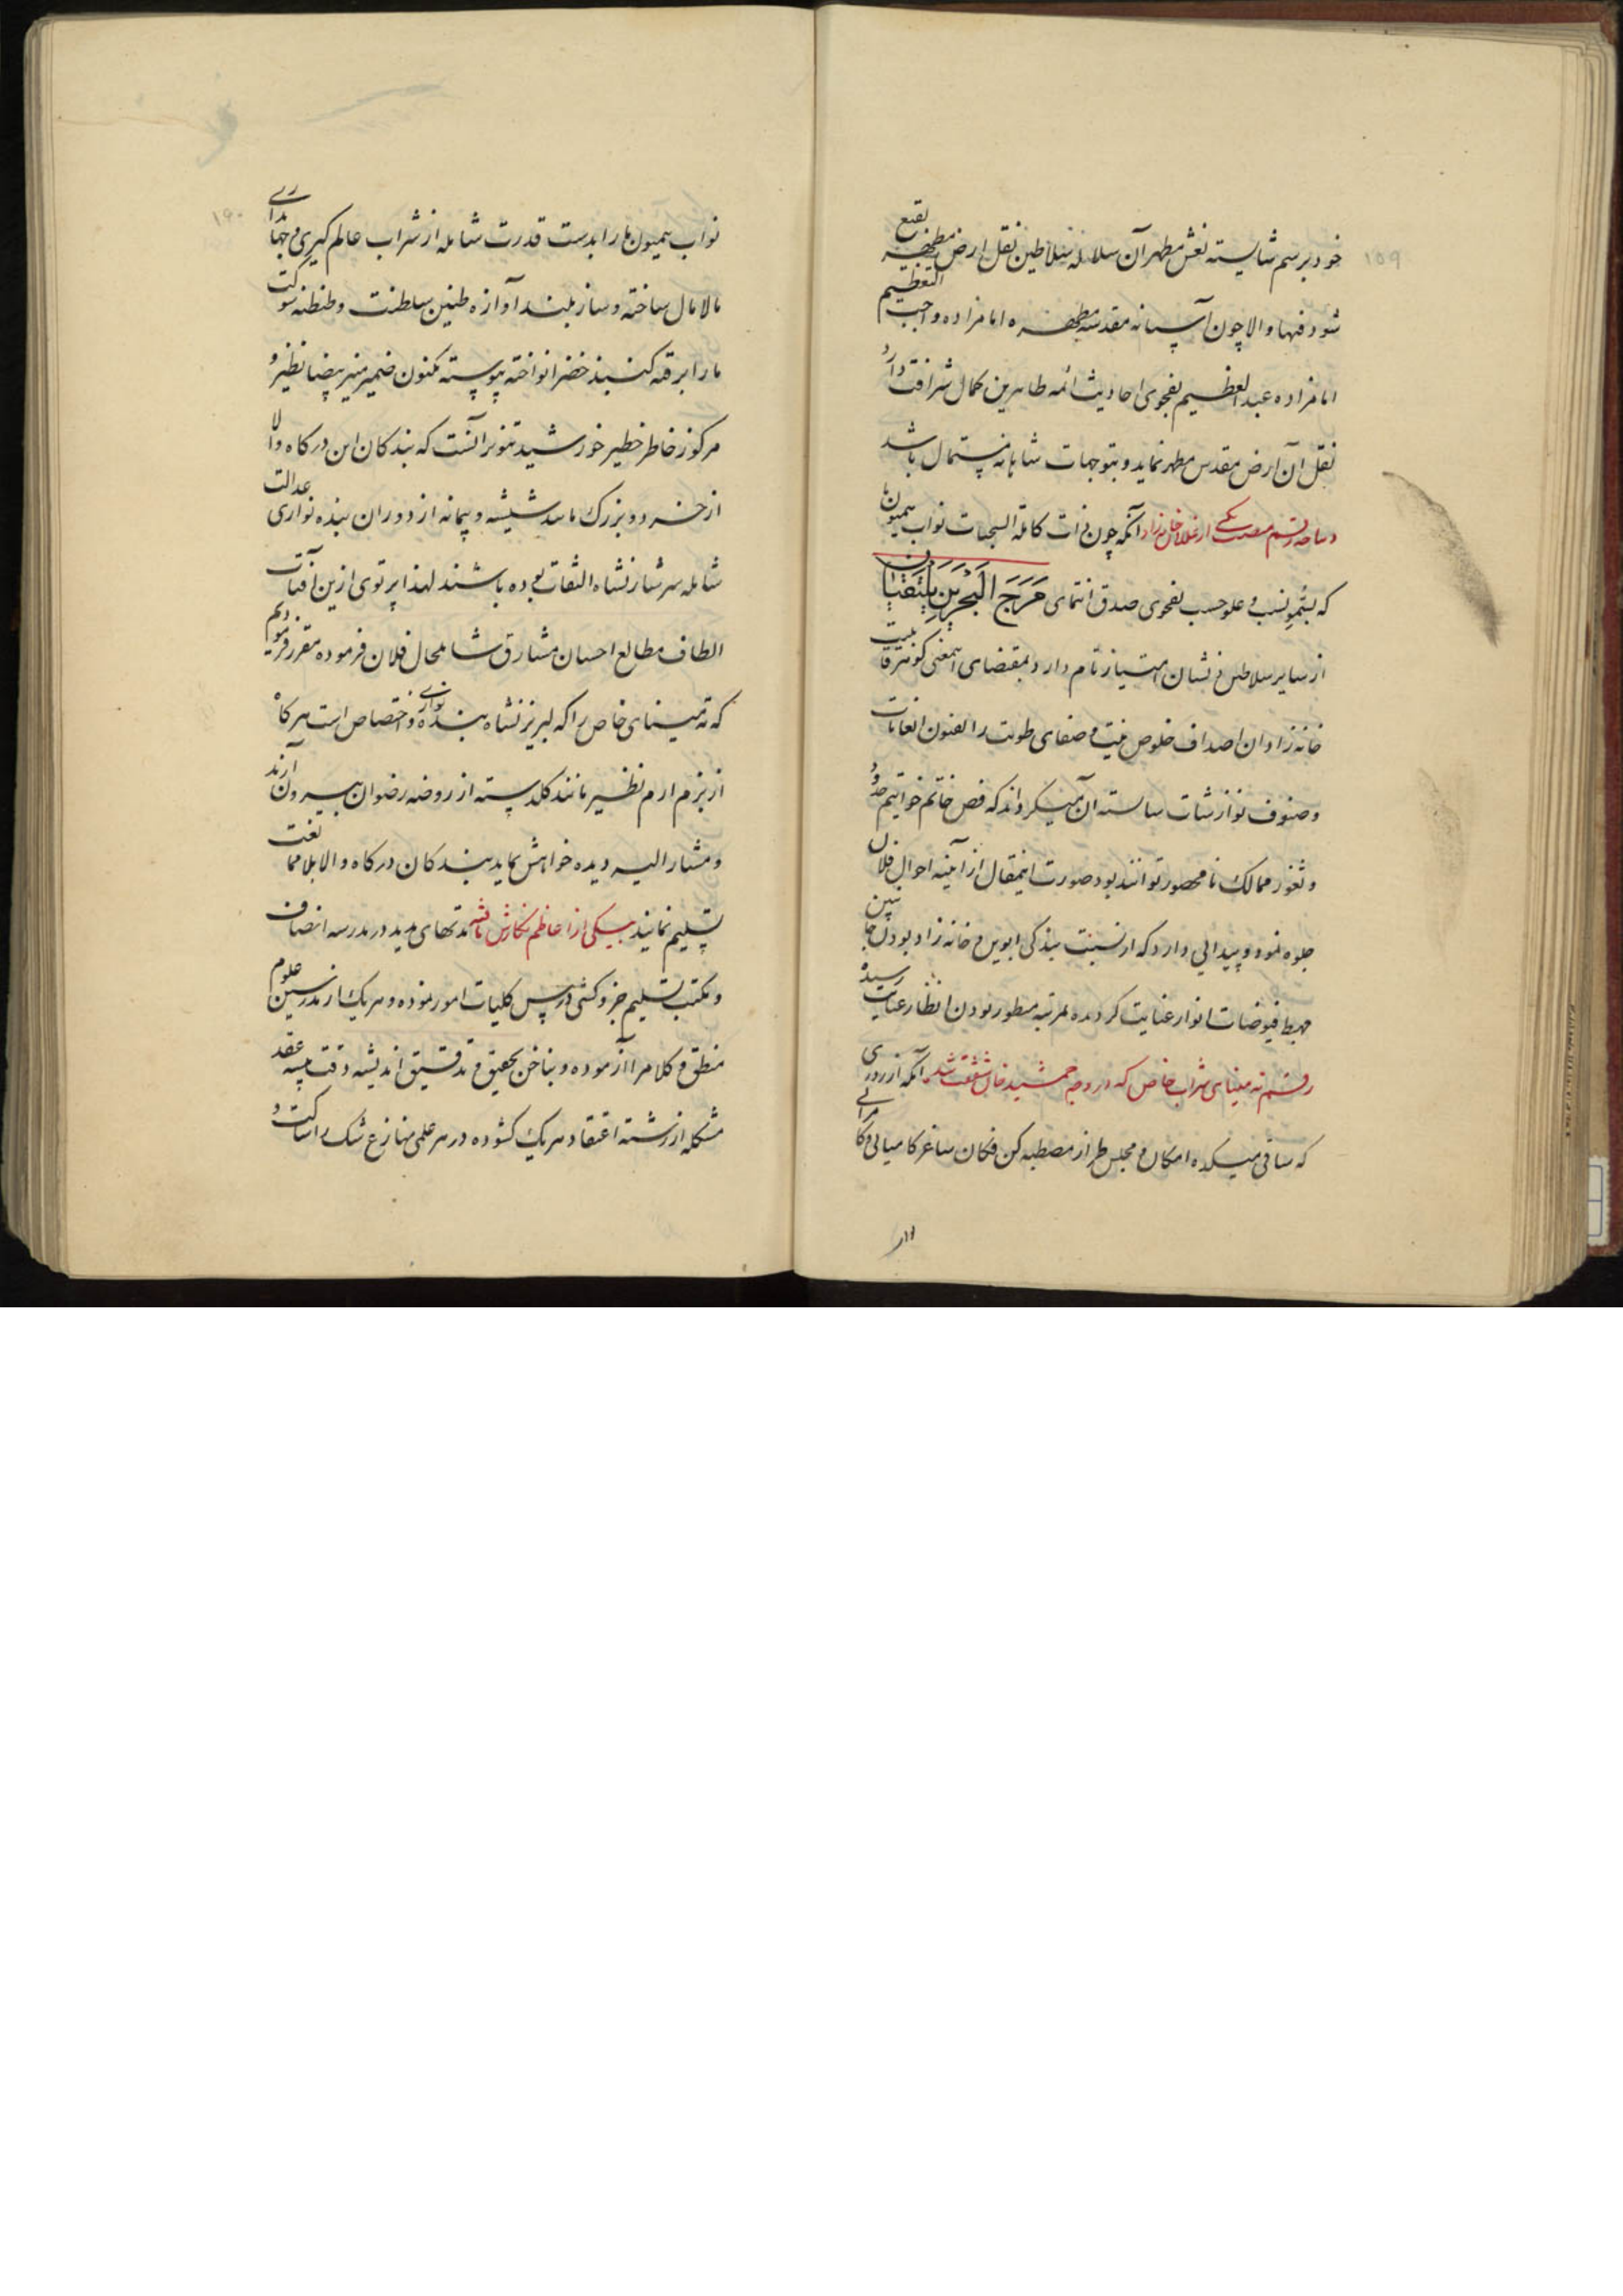 ۱۵۹
خود برسم شایسته نعش مطهر آن سلاله سلاطین نقل ارض مطهره بقیع
شود فبها و الا چون آستانه مقدسه مطهره امامزاده واجب التعظیم
امامزاده عبدالعظیم بفحوی احادیث ائمه طاهرین کمال شرافت دارد
نقل آن ارض مقدس مطهر نماید و بتوجهات شاهانه مستمال باشد
رقم یکی از غلامان خانه‌زاد آنکه چون ذات کاملة السجیات نواب همیون ما
که بسمو نسب و علو حسب بفحوی صدق انتمای مَرَجَ الْبَحْرَیْنِ یَلْتَقِیَانِ
از سایر سلاطین نشان امتیاز تام دارد بمقتضای این معنی گوهر
خانه زادان اصداف خلوص نیت و صفای طویت را بفنون انعامات
و صنوف نوازشات شایسته آن میگرداند که فص خاتم خواتیم حدود
و ثغور ممالک نامحصور توانند بود صورت اینمقال از آینه احوال فلان
جلوه نمود و پیدایی دارد که از نسبت بندکی ابوین و خانه زاد بودن جانبین
مهبط فیوضات انوار عنایت گردیده بمرتبه منظور بودن انظار عنایت رسیده
رقم ته مینای شراب خاص که در وجه جمشید خان شفقت شد آنکه از روزی
که ساقی میکده امکان و مجلس طراز مصطبه کن فکان ساغر کامیابی و کامرانی
نواب
۱۶۰
نواب همیون ما را بدست قدرت شامله از شراب عالم کیری و جهانداری
مالامال ساخته و ساز بلند آوازه طنین سلطنت و طنطنه شوکت
ما را بر قبه کنبد خضرا نواخته پیوسته مکنون ضمیر منیر بیضا نظیر و
مرکوز خاطر خطیر خورشید تنویر آنست که بندکان این درکاه والا
از خرد و بزرک مانند شیشه و پیمانه از دوران بنده نوازی عدالت
شامله سرشار نشاه التفات بوده باشند لهذا پرتوی ازین آفتاب
الطاف مطالع احسان مشارق شامل حال فلان فرموده مقرر فرمودیم
که ته مینای خاص را که لبریز نشاه بنده نوازی و اختصاص است هرکاه
از بزم ارم نظیر مانند کلدسته از روضه رضوان بیرون آرند
و مشار الیه دیده خواهش نماید بندکان درکاه والا بلا ممانعت
تسلیم نمایند بیکی از اعاظم نکارش یافته مدتهای مدید در مدرسه انصاف
و مکتب تسلیم جزو کشی درس کلیات امور نموده و هر یک از مدرسین علوم
منطق و کلام را آزموده و بناخن تحقیق و تدقیق اندیشه دقت پیشه عقد
مشکله از رشته اعتقاد هر یک کشوده در هر علمی منازع شک را ساکت و